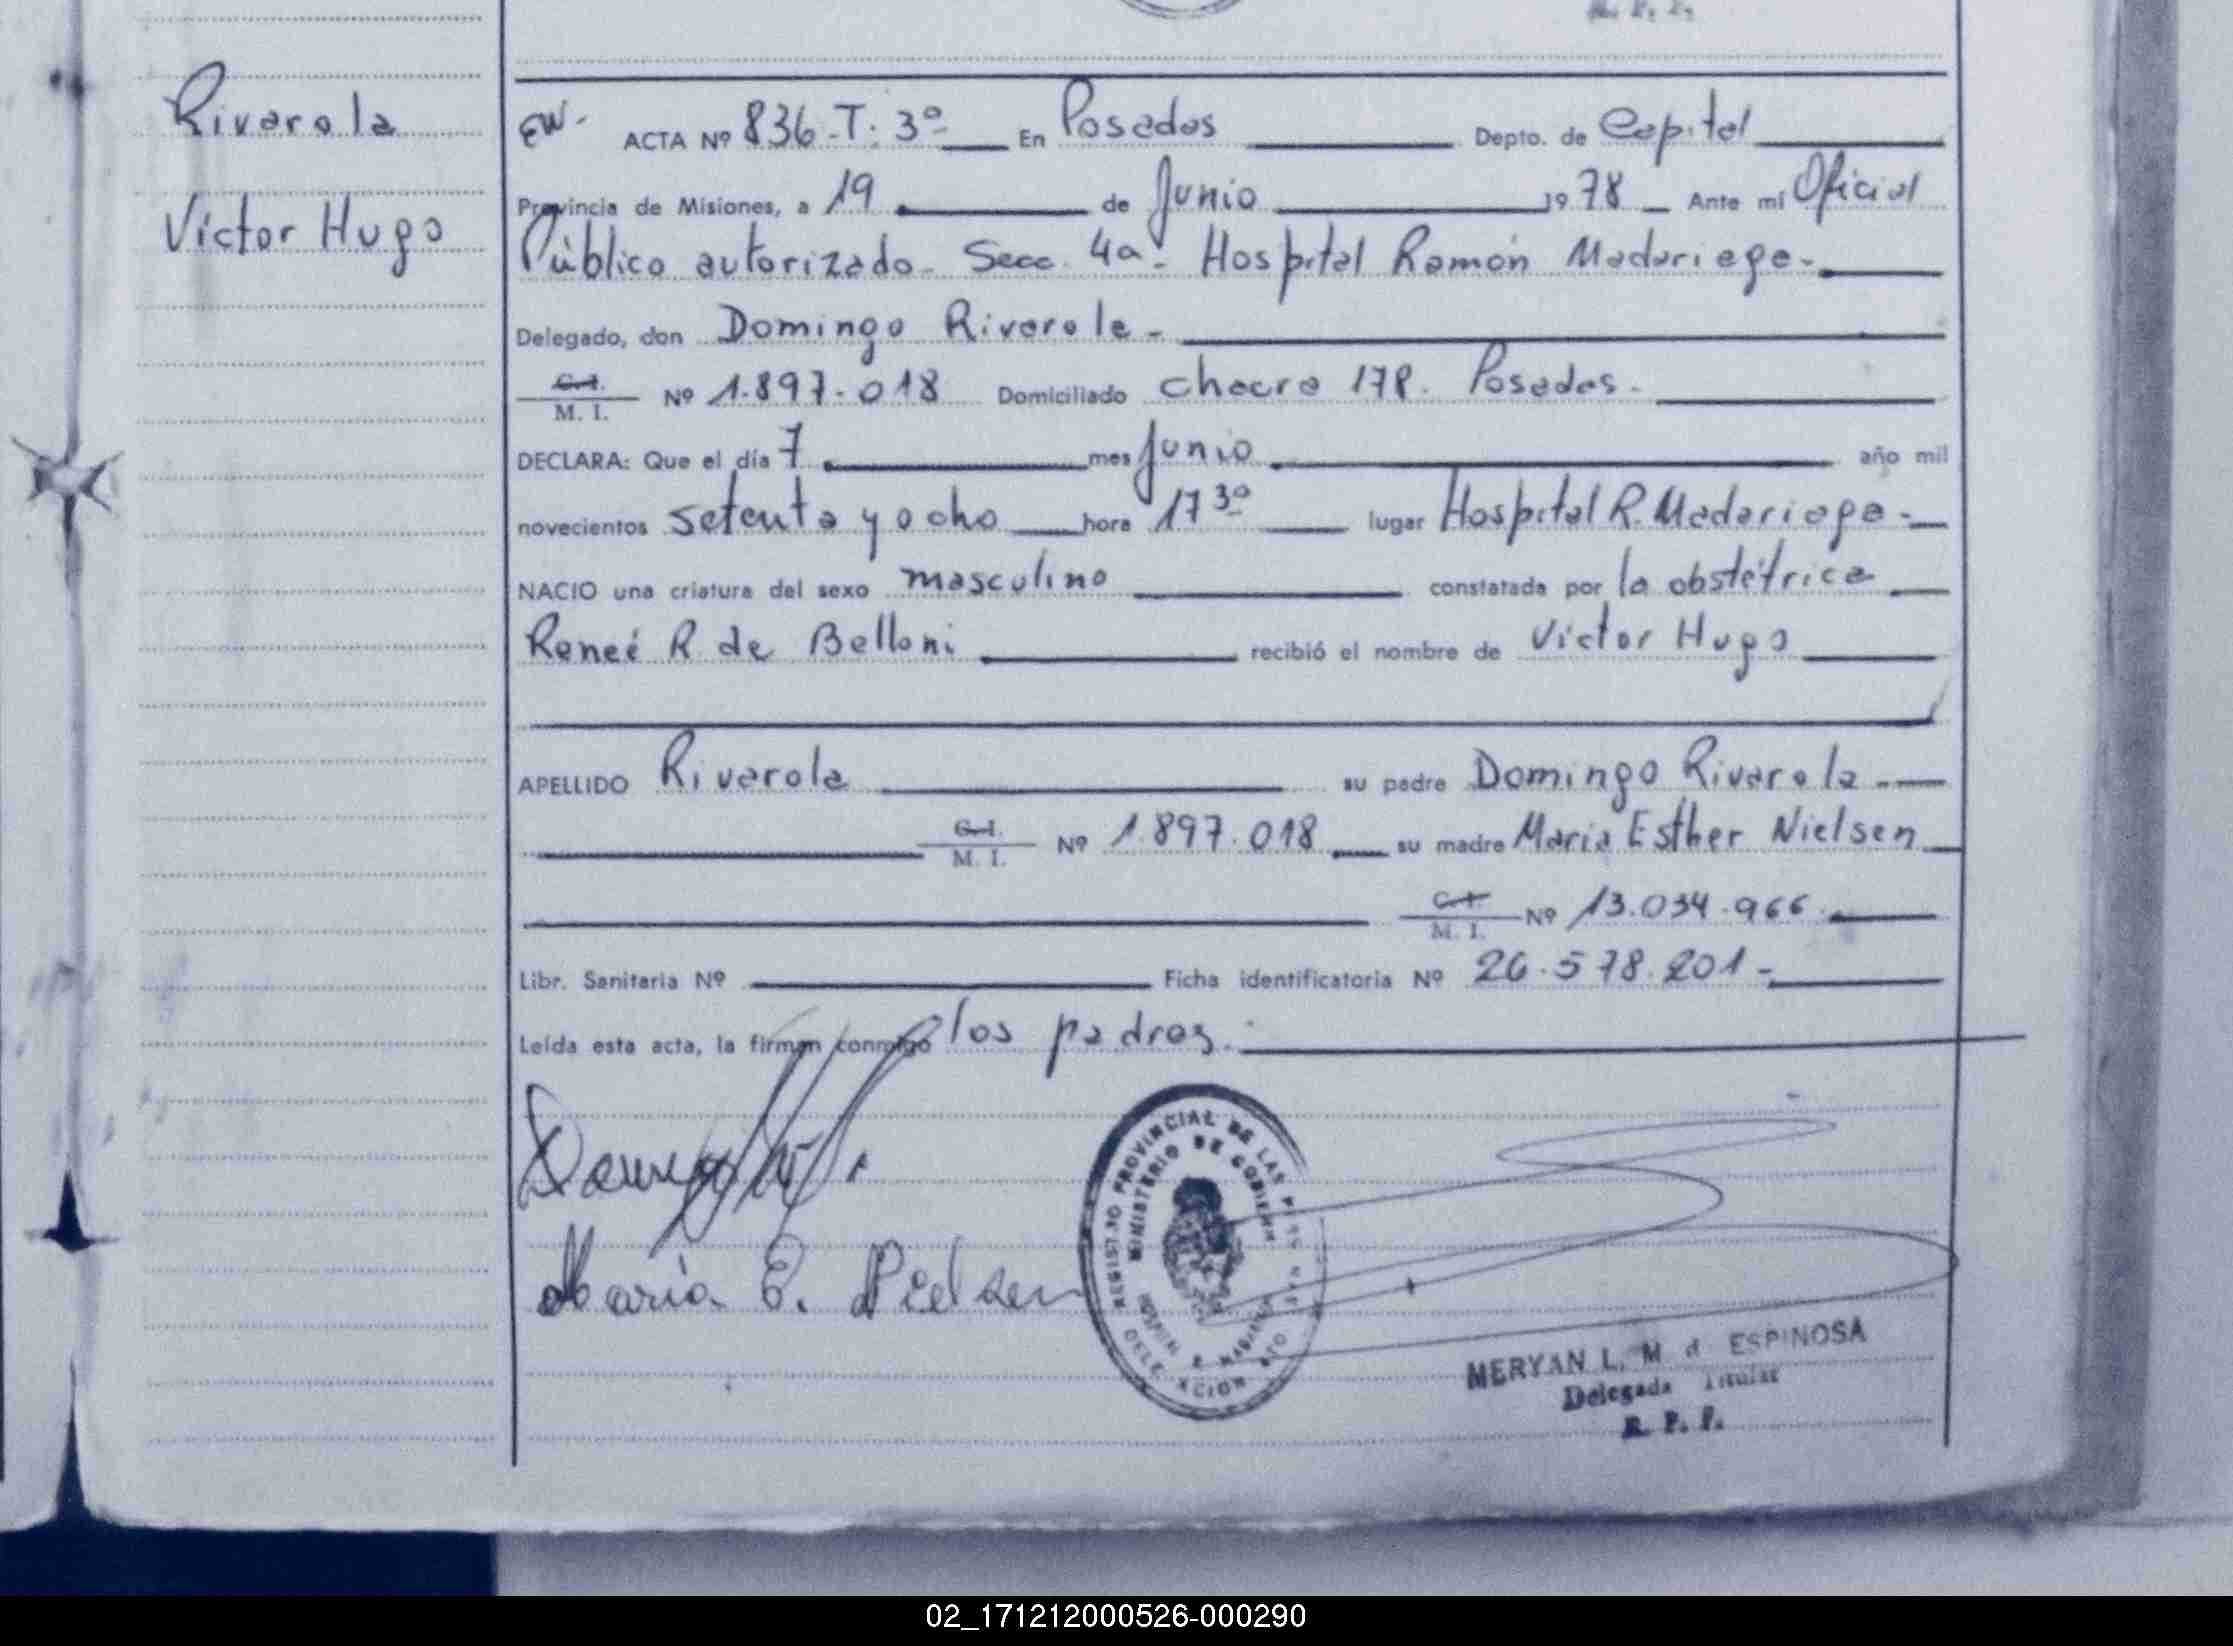 Rivarola
Víctor Hugo
ACTA Nº 836-T: 3º En Posadas Depto. de Capital
Provincia de Misiones, a 19 de Junio 1978 Ante mí Oficial
Público autorizado. Secc. 4a. Hospital Ramón Madariaga.
Delegado, don Domingo Rivarola.
C.I.
M. I. Nº 1.897.018 Domiciliado chacra 178. Posadas.
DECLARA: Que el día 7 mes Junio año mil
novecientos setenta y ocho hora 17 30 lugar Hospital R. Madariaga.
NACIO una criatura del sexo masculino constatada por la obstétrica
Reneé R de Belloni recibió el nombre de Víctor Hugo
APELLIDO Rivarola su padre Domingo Rivarola.
C.I.
M. I. Nº 1.897.018 su madre María Esther Nielsen
C.I.
M. I. Nº 13.034.966
Libr. Sanitaria Nº Ficha identificatoria Nº 26.578.201-
Leída esta acta, la firman conmigo los padres.
María E. Nielsen
REGISTRO PROVINCIAL DE LAS PERSONAS
MINISTERIO DE GOBIERNO
HOSPITAL R. MADARIAGA
DELEGACION
MERYAN L. M d ESPINOSA
Delegada Titular
R. P. P.
02_171212000526-000290